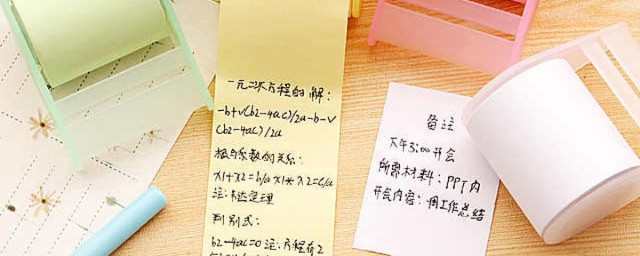 一元二次方程的解：
-b+√(b2-4ac)/2a-b-√
(b2-4ac)/2a
根与系数的关系：
x1+x2=b/a x1*x2=c/a
注：韦达定理
判别式：
b2-4ac=0 注：方程有2
备注
下午3:00开会
所需材料：PPT内
开会内容：周工作总结